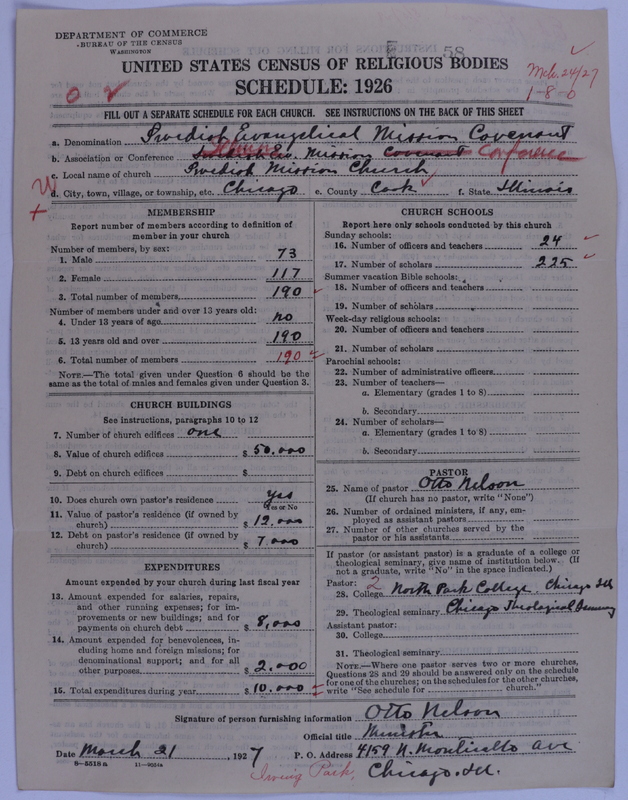 DEPARTMENT OF COMMERCE
BUREAU OF THE CENSUS
WASHINGTON
58
UNITED STATES CENSUS OF RELIGIOUS BODIES
SCHEDULE: 1926
Mch. 24/27
1-8-6
FILL OUT A SEPARATE SCHEDULE FOR EACH CHURCH. SEE INSTRUCTIONS ON THE BACK OF THIS SHEET
a. Denomination Swedish Evangelical Mission Covenant
b. Association or Conference Swedish Ev. Mission Covenant Conference
c. Local name of church Swedish Mission Church
d. City, town, village, or township, etc. Chicago e. County Cook f. State Illinois
MEMBERSHIP
Report number of members according to definition of member in your church
Number of members, by sex:
1. Male 73
2. Female 117
3. Total number of members 190
Number of members under and over 13 years old:
4. Under 13 years of age no
5. 13 years old and over 190
6. Total number of members 190
NOTE.—The total given under Question 6 should be the
same as the total of males and females given under Question 3.
CHURCH BUILDINGS
See instructions, paragraphs 10 to 12
7. Number of church edifices one
8. Value of church edifices $ 50,000
9. Debt on church edifices $
10. Does church own pastor's residence yes
Yes or No
11. Value of pastor's residence (if owned by
church) $ 12,000
12. Debt on pastor's residence (if owned by
church) $ 7,000
EXPENDITURES
Amount expended by your church during last fiscal year
13. Amount expended for salaries, repairs,
and other running expenses; for im-
provements or new buildings; and for
payments on church debt $ 8,000
14. Amount expended for benevolences, in-
cluding home and foreign missions; for
denominational support; and for all
other purposes $ 2,000
15. Total expenditures during year $ 10,000
CHURCH SCHOOLS
Report here only schools conducted by this church
Sunday schools:
16. Number of officers and teachers 24
17. Number of scholars 225
Summer vacation Bible schools:
18. Number of officers and teachers
19. Number of scholars
Week-day religious schools:
20. Number of officers and teachers
21. Number of scholars
Parochial schools:
22. Number of administrative officers
23. Number of teachers—
a. Elementary (grades 1 to 8)
b. Secondary
24. Number of scholars—
a. Elementary (grades 1 to 8)
b. Secondary
PASTOR
25. Name of pastor Otto Nelson
(If church has no pastor, write "None")
26. Number of ordained ministers, if any, em-
ployed as assistant pastors
27. Number of other churches served by the
pastor or his assistants
If pastor (or assistant pastor) is a graduate of a college or
theological seminary, give name of institution below. (If
not a graduate, write "No" in the space indicated.)
Pastor: 2
28. College North Park College, Chicago Ill
29. Theological seminary Chicago Theological Seminary
Assistant pastor:
30. College
31. Theological seminary
NOTE.—Where one pastor serves two or more churches,
Questions 28 and 29 should be answered only on the schedule
for one of the churches; on the schedules for the other churches,
write "See schedule for church."
Signature of person furnishing information Otto Nelson
Official title Minister
Date March 21 1927 P. O. Address 4159 N. Monticello Ave
8-5518a 11-9024a
Irving Park, Chicago. Ill.